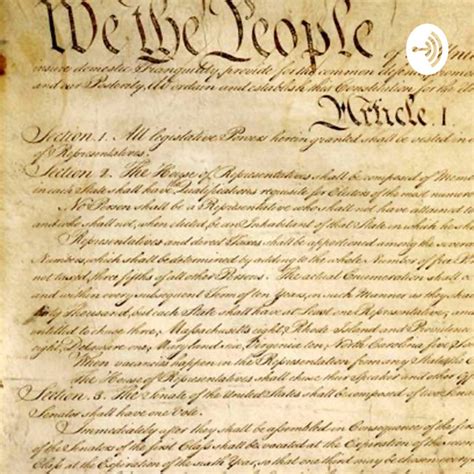 We the People of the
insure domestic Tranquility, provide for the common defence,
and our Posterity, do ordain and establish this Constitution for the
Article. I.
Section. 1. All legislative Powers herein granted shall be vested in
of Representatives.
Section. 2. The House of Representatives shall be composed of
in each State shall have the Qualifications requisite for Electors of the most
No Person shall be a Representative who shall not have attained
and who shall not, when elected, be an Inhabitant of that State in which he
Representatives and direct Taxes shall be apportioned among the
Numbers, which shall be determined by adding to the whole Number of free
not taxed, three fifths of all other Persons. The actual Enumeration shall
and within every subsequent Term of ten Years, in such Manner as they
thousand, but each State shall have at Least one Representative; and
entitled to chuse three, Massachusetts eight, Rhode Island and
eight, Delaware one, Maryland six, Virginia ten, North Carolina five,
When vacancies happen in the Representation from any State, the
The House of Representatives shall chuse their Speaker and other
Section. 3. The Senate of the United States shall be composed of two
Senator shall have one Vote.
Immediately after they shall be assembled in Consequence of the
of the Senators of the first Class shall be vacated at the Expiration of the
Class at the Expiration of the sixth Year, so that one third may be chosen